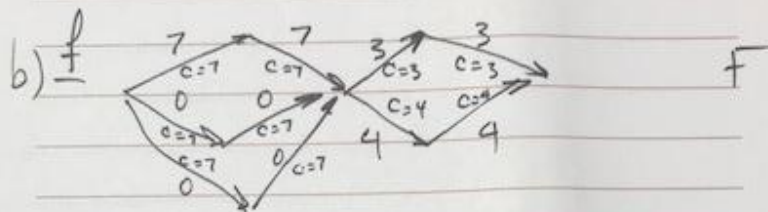 7 7 3 3
b) f c=7 c=7 c=3 c=3 F
0 0 c=4 c=4
c=7 c=7 4 4
c=7 0 c=7
0